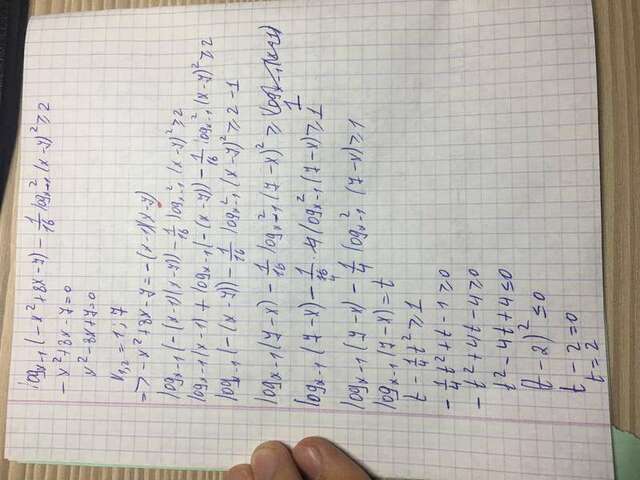 log_{x-1} (-x² + 8x - 7) - 1/16 log²_{x-1} (x-7)² ≥ 2
-x² + 8x - 7 = 0
x² - 8x + 7 = 0
x_{1,2} = 1; 7
=> -x² + 8x - 7 = -(x-1)(x-7)
log_{x-1} (-(x-1)(x-7)) - 1/16 log²_{x-1} (x-7)² ≥ 2
log_{x-1} (x-1) + log_{x-1} (-(x-7)) - 1/16 log²_{x-1} (x-7)² ≥ 2
log_{x-1} (-(x-7)) - 1/16 log²_{x-1} (x-7)² ≥ 2 - 1
log_{x-1} (7-x) - 1/16 log²_{x-1} (7-x)² ≥ 1
log_{x-1} (7-x) - 1/16 · 4 log²_{x-1} (7-x) ≥ 1
log_{x-1} (7-x) - 1/4 log²_{x-1} (7-x) ≥ 1
log_{x-1} (7-x) = t
t - 1/4 t² ≥ 1
- 1/4 t² + t - 1 ≥ 0
- t² + 4t - 4 ≥ 0
t² - 4t + 4 ≤ 0
(t - 2)² ≤ 0
t - 2 = 0
t = 2